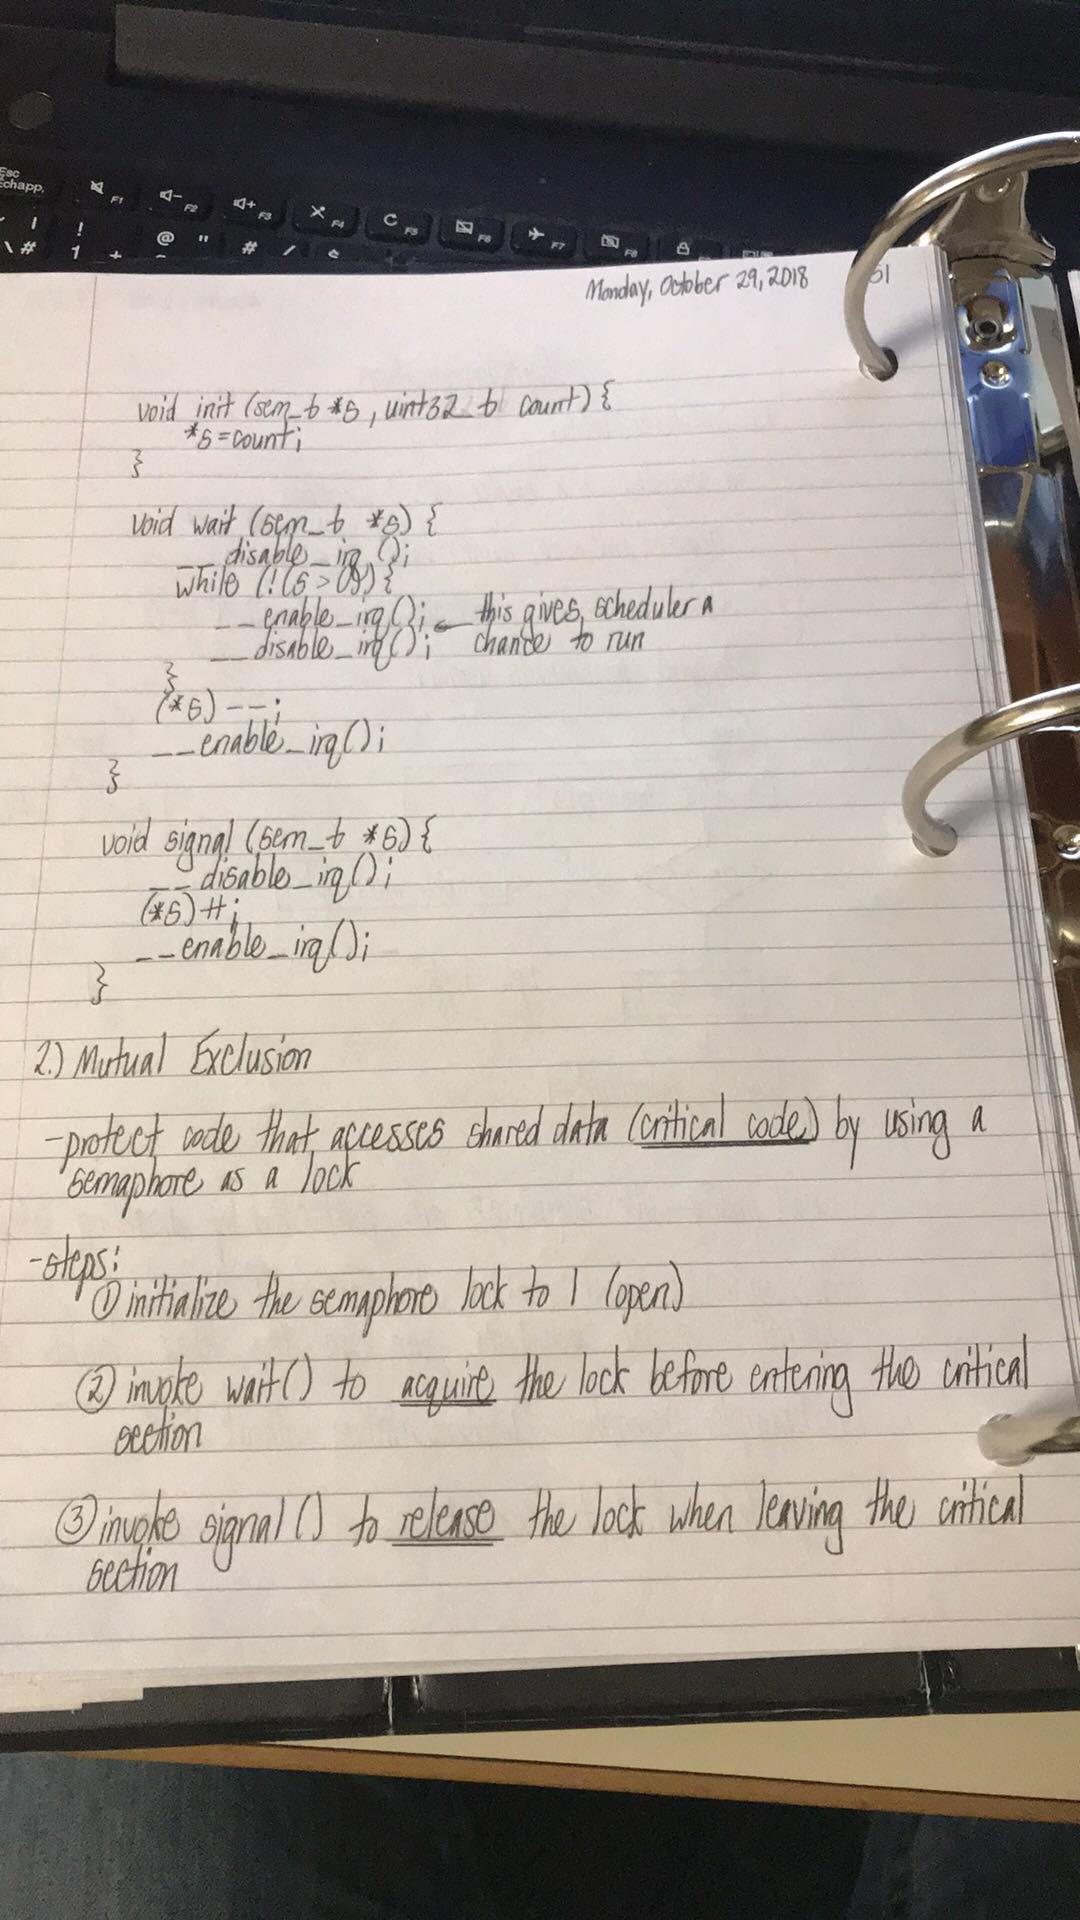 Esc
Echapp.
F1
F2
F3
F4
F5
F6
F7
F8
\ # ! 1 + @ " # /
Monday, October 29, 2018
01
void init (sem_t *s, uint32_t count) {
*s = count;
}
void wait (sem_t *s) {
__disable_irq();
while (!(s > 0)) {
__enable_irq(); ← this gives scheduler a
__disable_irq(); chance to run
}
(*s)--;
__enable_irq();
}
void signal (sem_t *s) {
__disable_irq();
(*s)++;
__enable_irq();
}
2.) Mutual Exclusion
- protect code that accesses shared data (critical code) by using a
semaphore as a lock
- steps:
① initialize the semaphore lock to 1 (open)
② invoke wait() to acquire the lock before entering the critical
section
③ invoke signal() to release the lock when leaving the critical
section